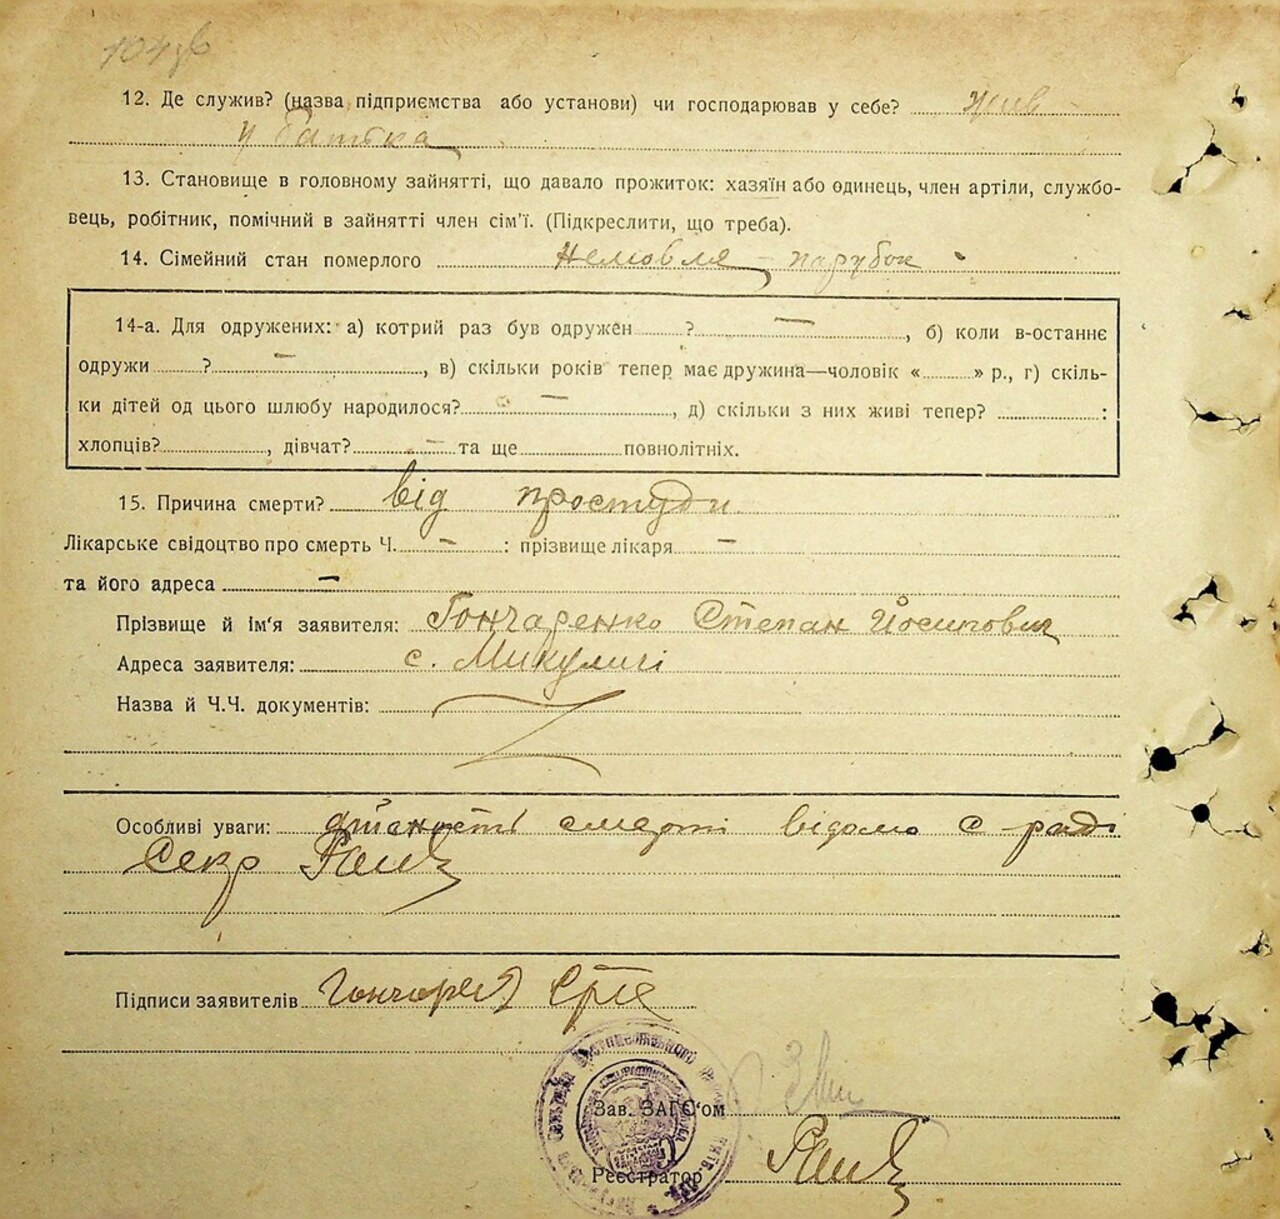 12. Де служив? (назва підприємства або установи) чи господарював у себе? жив
у батька
13. Становище в головному зайнятті, що давало прожиток: хазяїн або одинець, член артіли, службо-
вець, робітник, помічний в зайнятті член сім'ї. (Підкреслити, що треба).
14. Сімейний стан померлого немовля - парубок
14-а. Для одружених: а) котрий раз був одружен ? —, б) коли в-останнє
одружи ? —, в) скільки років тепер має дружина—чоловік « » р., г) скіль-
ки дітей од цього шлюбу народилося? —, д) скільки з них живі тепер? :
хлопців? , дівчат? — та ще повнолітніх.
15. Причина смерти? від простуди
Лікарське свідоцтво про смерть Ч. — : прізвище лікаря —
та його адреса —
Прізвище й ім'я заявителя: Гончаренко Степан Йосипович
Адреса заявителя: с. Микуличі
Назва й Ч.Ч. документів:
Особливі уваги: смерті відомо с раді
Секр
Підписи заявителів
Зав. ЗАГС'ом
Реєстратор